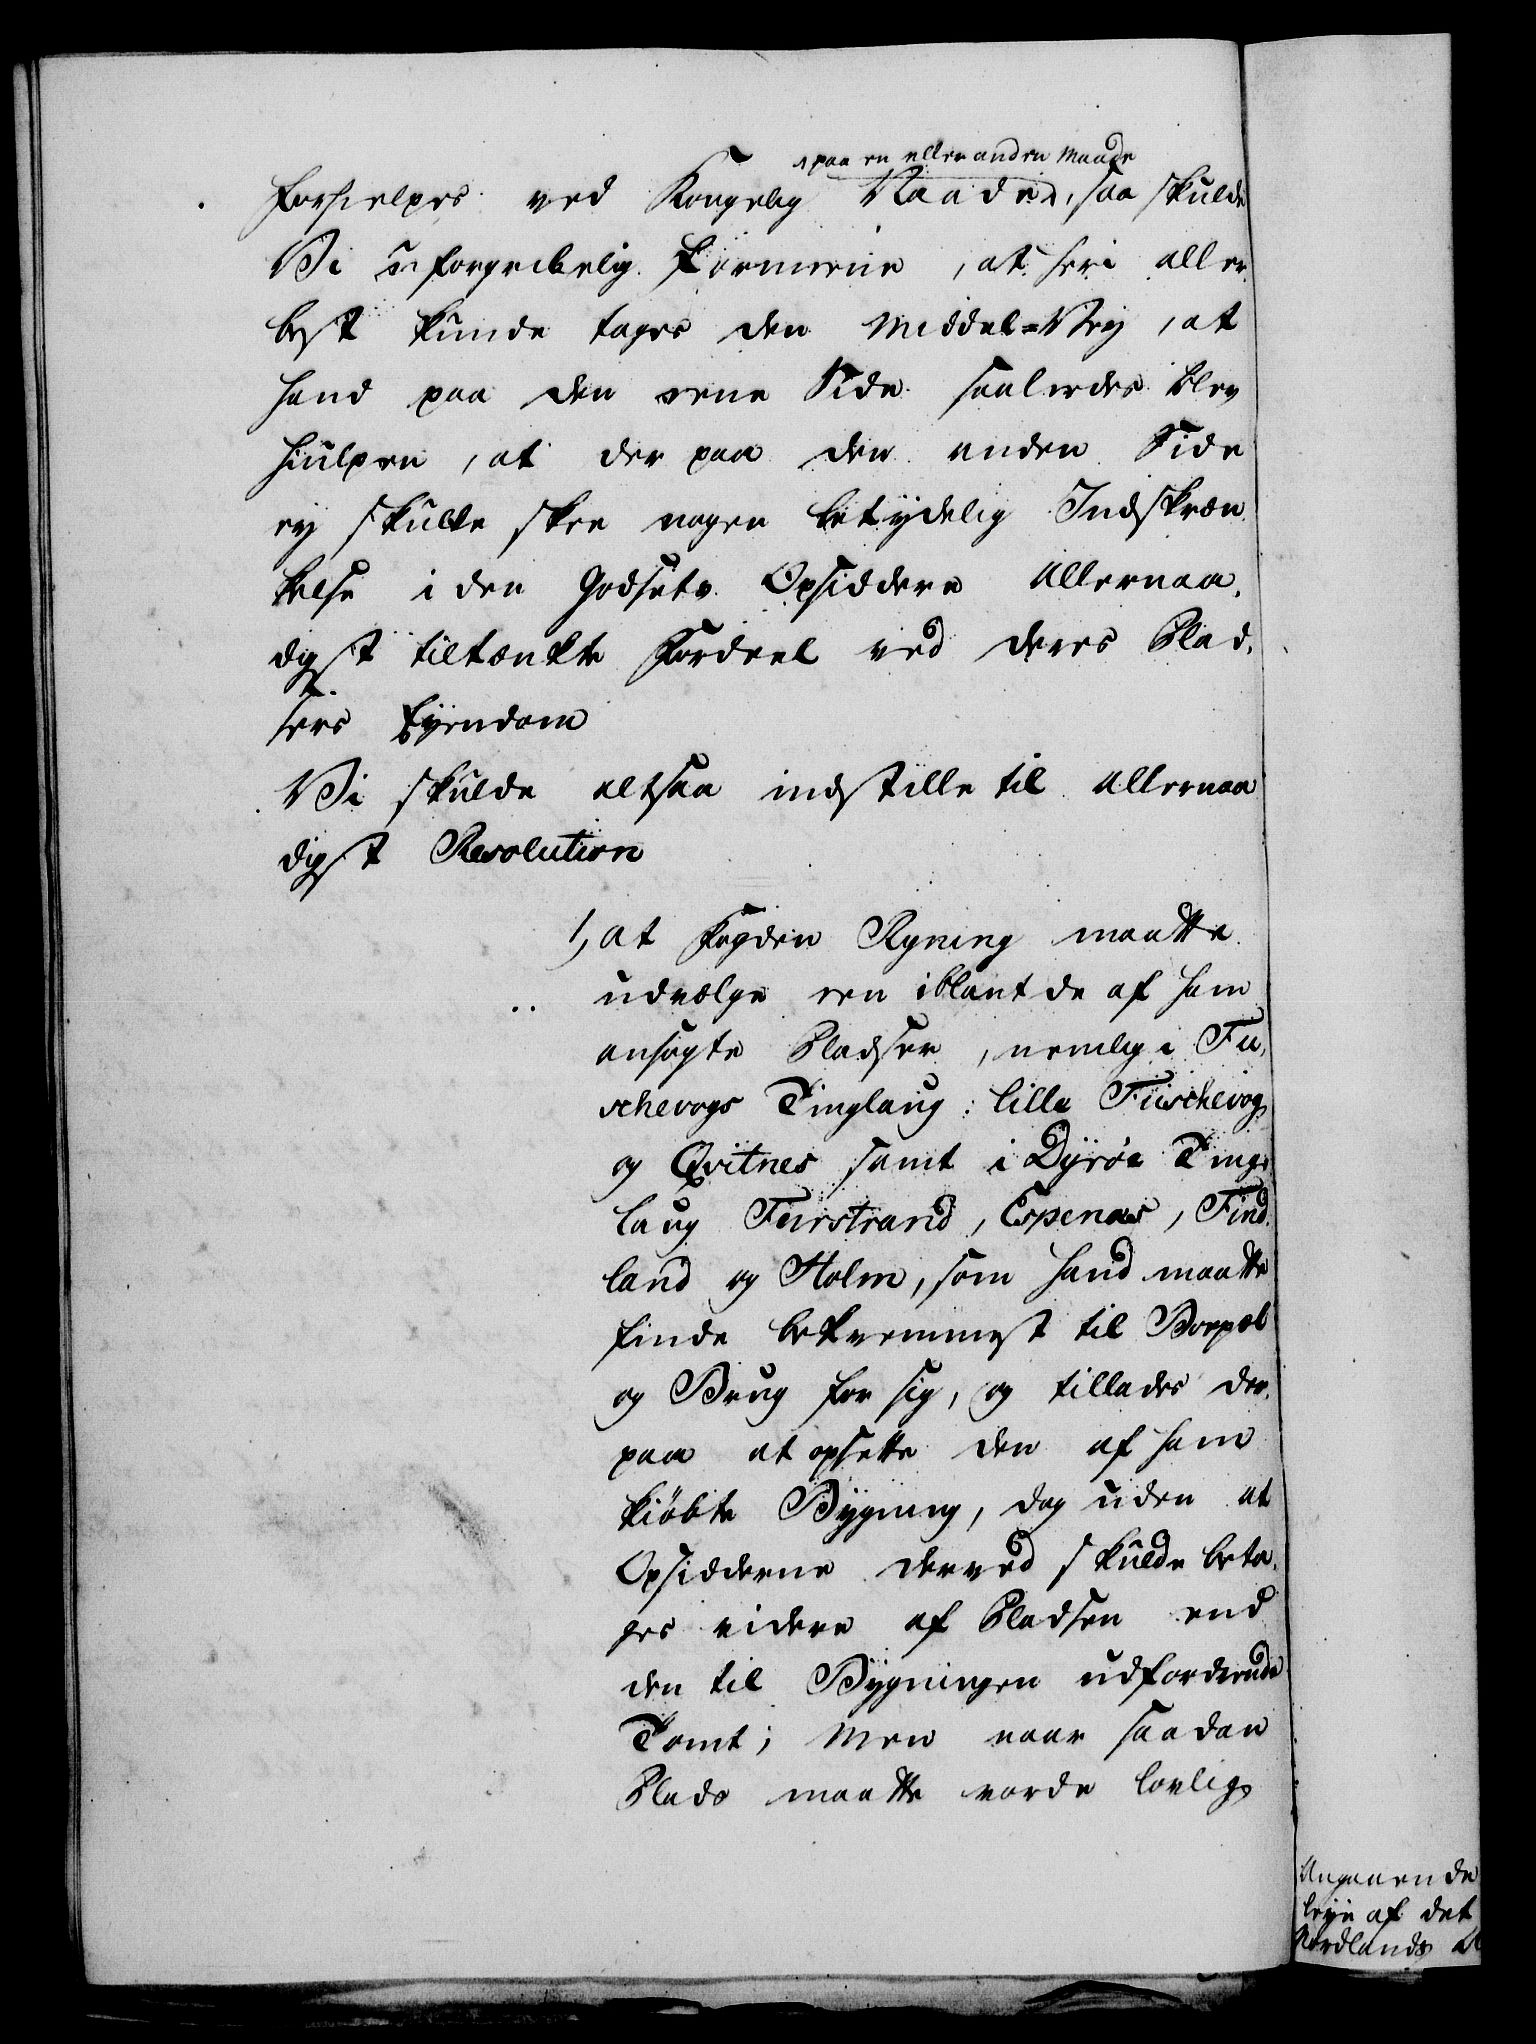 paa en eller anden Maade
forhielpes ved Kongelig Naade, saa skulde
Vi uforgribelig formeene, at heri aller-
best kunde tages den Middel-Vey, at
hand paa den eene Side saaledes blev
hiulpen, at der paa den anden Side
ey skulle skee nogen betydelig Indskræn-
kelse i den Godsets Opsiddere allernaa-
digst tiltænkte Fordeel ved deres Plad-
sers Eyendom
Vi skulde altsaa indstille til allernaa
digst Resolution
1, at Fogden Ryning maatte
udvælge een iblant de af ham
ansøgte Pladser, nemlig i Fu-
schevogs Tinglaug: lille Fuschevog
og Qvitnes samt i Dyrøe Ting-
laug Furstrand, Espenæs, Find-
land og Holm, som hand maatte
finde beqvemmest til Boepæl
og Brug for sig, og tillades der-
paa at opsette den af ham
kiøbte Bygning, dog uden at
Opsidderne derved skulde beta-
ges videre af Pladsen end
den til Bygningen udfordrende
Tomt; Men naar saadan
Plads maatte vorde lovlig
Angaaende
leye af det
Nordlands